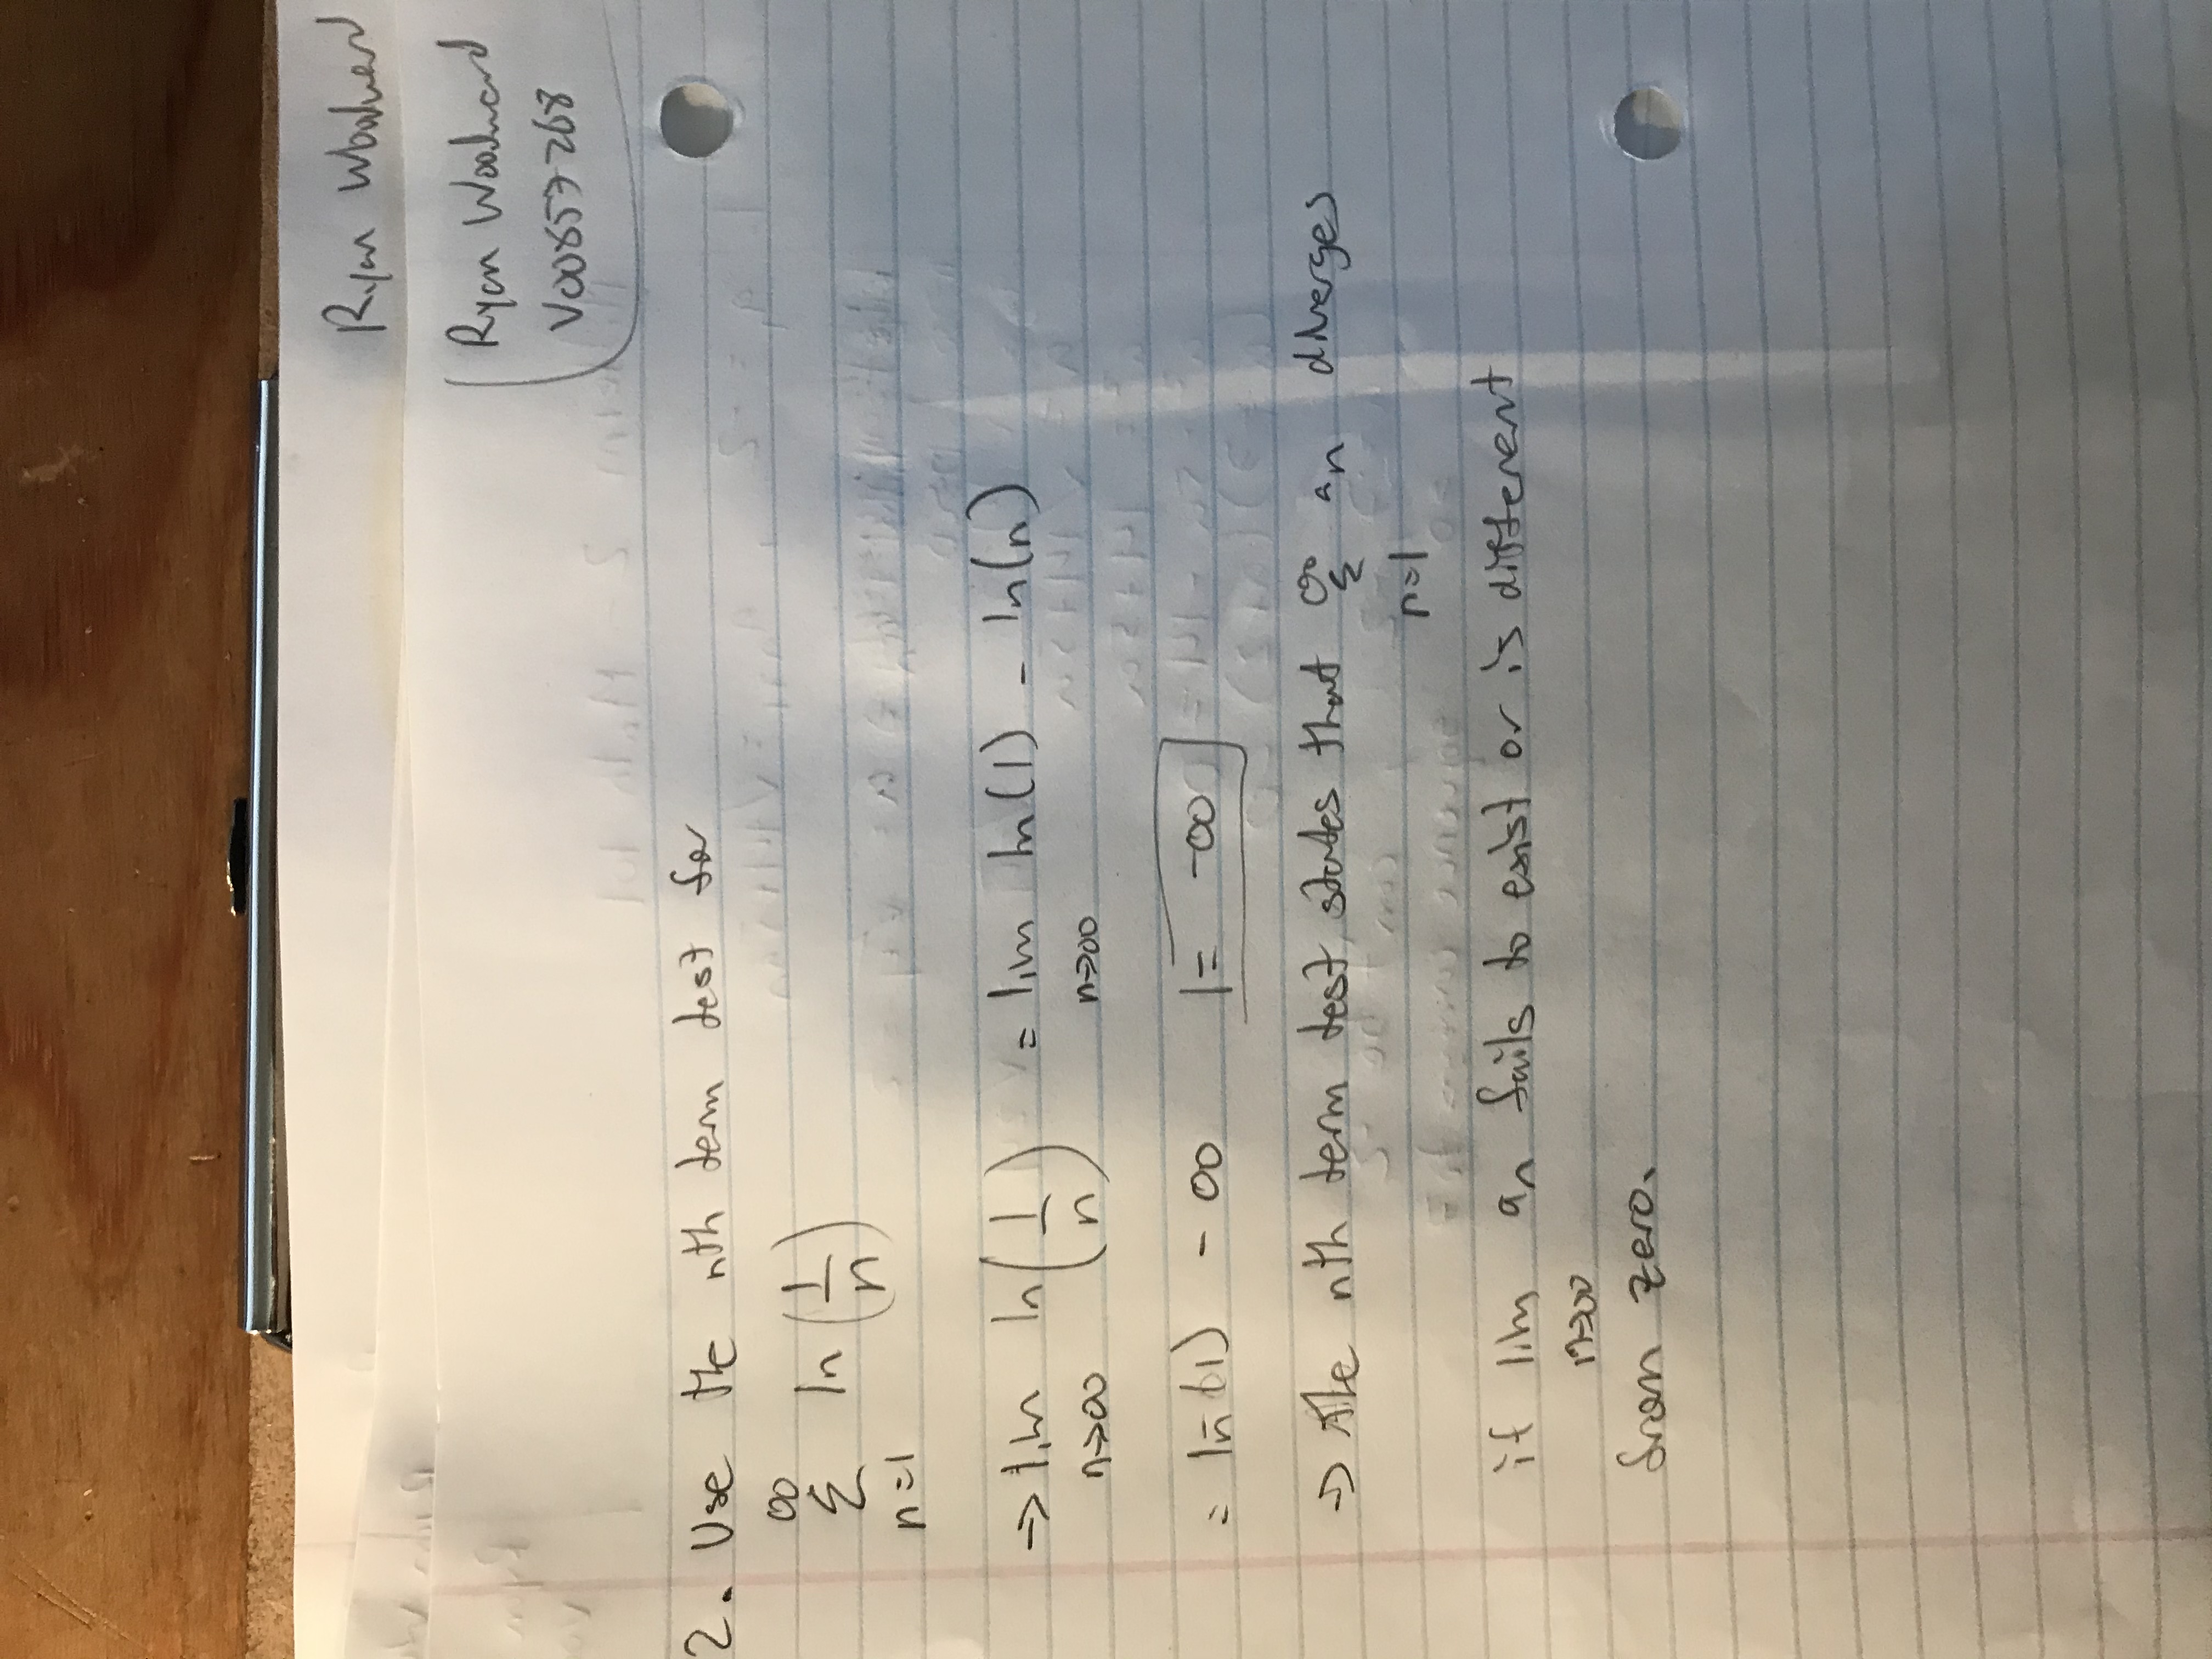 Ryan Woodward
Ryan Woodward
V00857268
2. Use the nth term test for
∞
Σ ln(1/n)
n=1
→ lim ln(1/n) = lim ln(1) - ln(n)
n→∞ n→∞
= ln(1) - ∞ = -∞
→ The nth term test states that ∞ Σ an diverges
n=1
if lim an fails to exist or is different
n→∞
from zero.